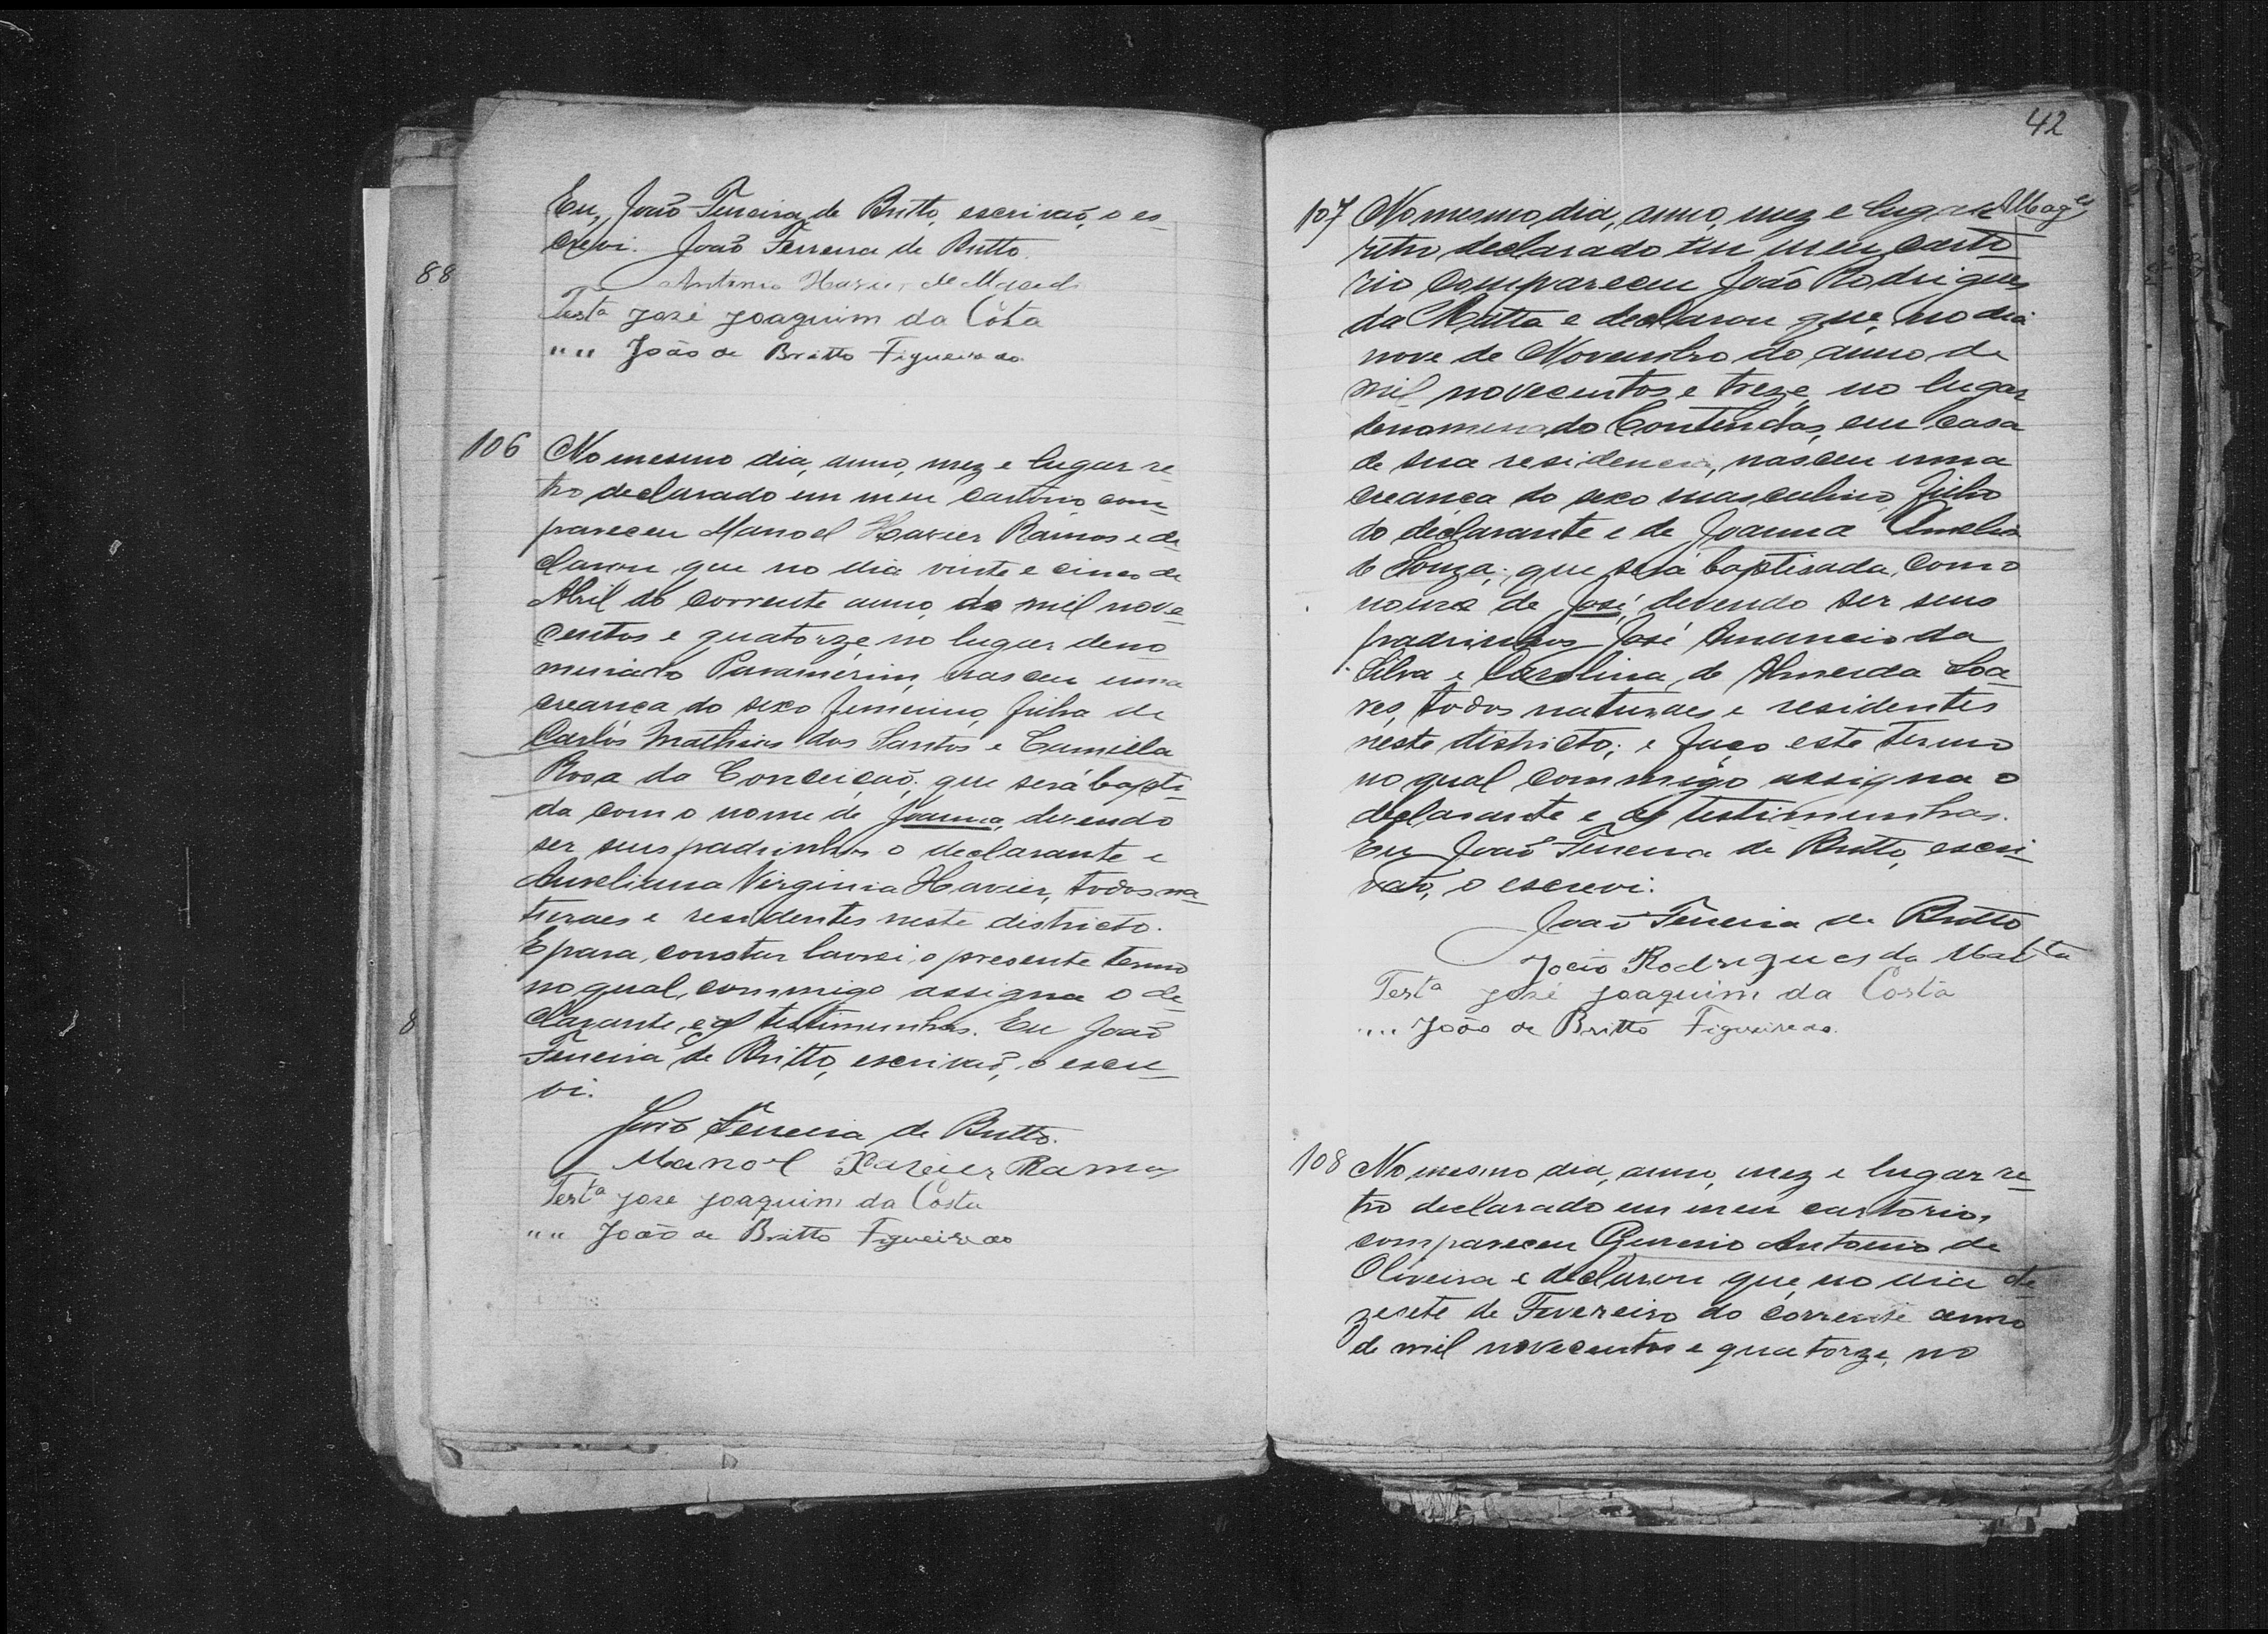 Eu, João Ferreira de Britto, escrivaõ, o es-
crevi. João Ferreira de Britto.
88
Antonio Xavier de
Testa José Joaquim da Costa
" " João de Britto Figueiredo
106 No mesmo dia, anno, mez e lugar re-
tro declarado em meu cartorio com-
pareceu Manoel Xavier Ramos e de-
clarou que no dia vinte e cinco de
Abril do corrente anno, de mil nove-
centos e quatorze no lugar deno-
minado Paramerim, nasceu uma
creança do sexo femenino, filha de
Carlos Mathias dos Santos e Camilla
Rosa da Conceiçaõ; que será bapti-
da com o nome de Joanna, devendo
ser seus padrinhos o declarante e
Aureliana Virginia Xavier, todos na-
turaes e residentes neste districto.
E para constar lavrei o presente termo
no qual, commigo assigna o de-
8
clarante e as testimunhas. Eu João
Ferreira de Britto, escrivaõ, o escre-
vi.
João Ferreira de Britto.
Manoel Xavier Ramos
Testa José Joaquim da Costa
" " João de Britto Figueiredo
42
107 No mesmo dia, anno, mez e lugar
retro declarado em meu carto-
rio compareceu João Rodrigues
da Matta e declarou que, no dia
nove de Novembro do anno de
mil novecentos e treze, no lugar
denomenado Contendas, em casa
de sua residencia, nasceu uma
creança do sexo masculino, filho
do declarante e de Joanna Amelia
de Souza; que será baptisada, com o
nome de José, devendo ser seus
padrinhos José Amancio da
Silva e Carolina de Almeida Soa-
res, todos naturaes e residentes
neste districto; e faço este termo
no qual commigo assigna o
declarante e as testimunhas.
Eu João Ferreira de Britto, escri-
vaõ, o escrevi.
João Ferreira de Britto
João Rodrigues da Matta
Testa José Joaquim da Costa
" " João de Britto Figueiredo.
108 No mesmo dia, anno, mez e lugar re-
tro declarado em meu cartorio,
compareceu Antonio de
Oliveira e declarou que, no dia de-
zesete de Fevereiro do corrente anno
de mil novecentos e quatorze, no